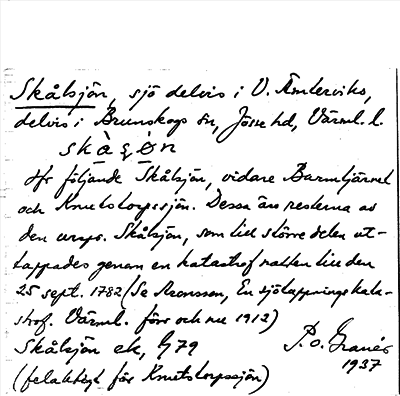 Skålsjön, sjö delvis i V. Ämterviks,
delvis i Brunskogs sn, Jösse hd, Värml. l.
skàgọ̀n
Jfr följande Skålsjön, vidare Barmtjärnet
och Knutstorpssjön. Dessa äro resterna av
den urspr. Skålsjön, som till större delen ut-
tappades genom en katastrof natten till den
25 sept. 1782 (Se Aronsson, En sjötappningskata-
strof. Värml. förr och nu 1912)
Skålsjön ek, G 79
P.O. Granér
1937
(felaktigt för Knutstorpssjön)